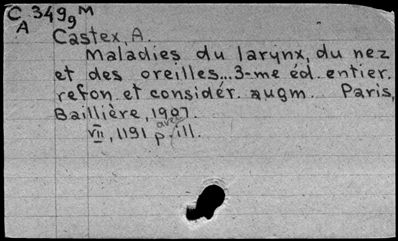 C 349g M
A
Castex, A.
Maladies du larynx, du nez
et des oreilles...3-me éd. entier.
refon. et considér. augm. Paris,
Baillière, 1907.
VII, 1191 p. avec ill.